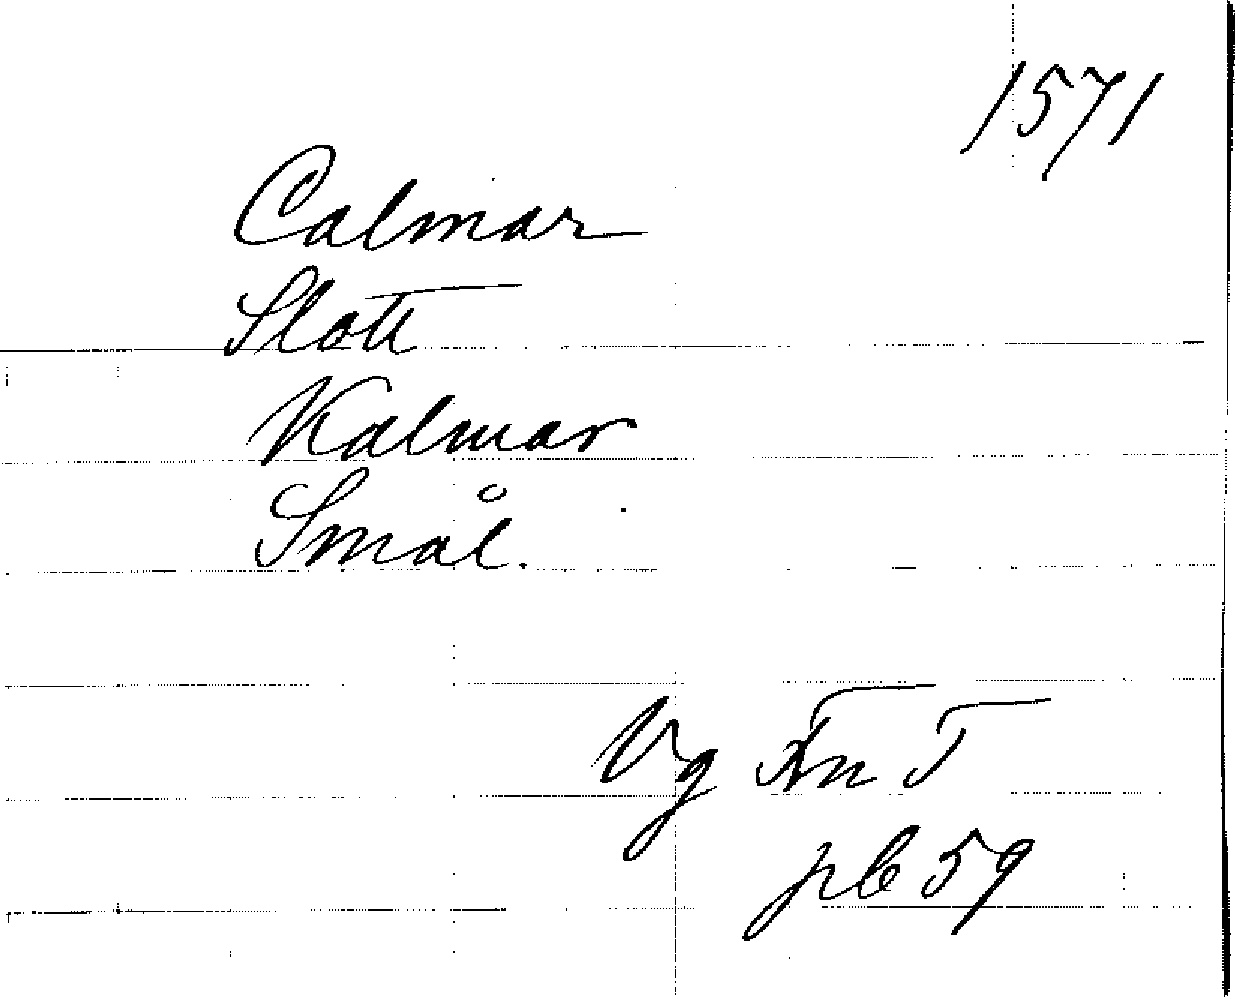 1571
Calmar
Slott
Kalmar
Smål.
Vg Fn T
pb 59